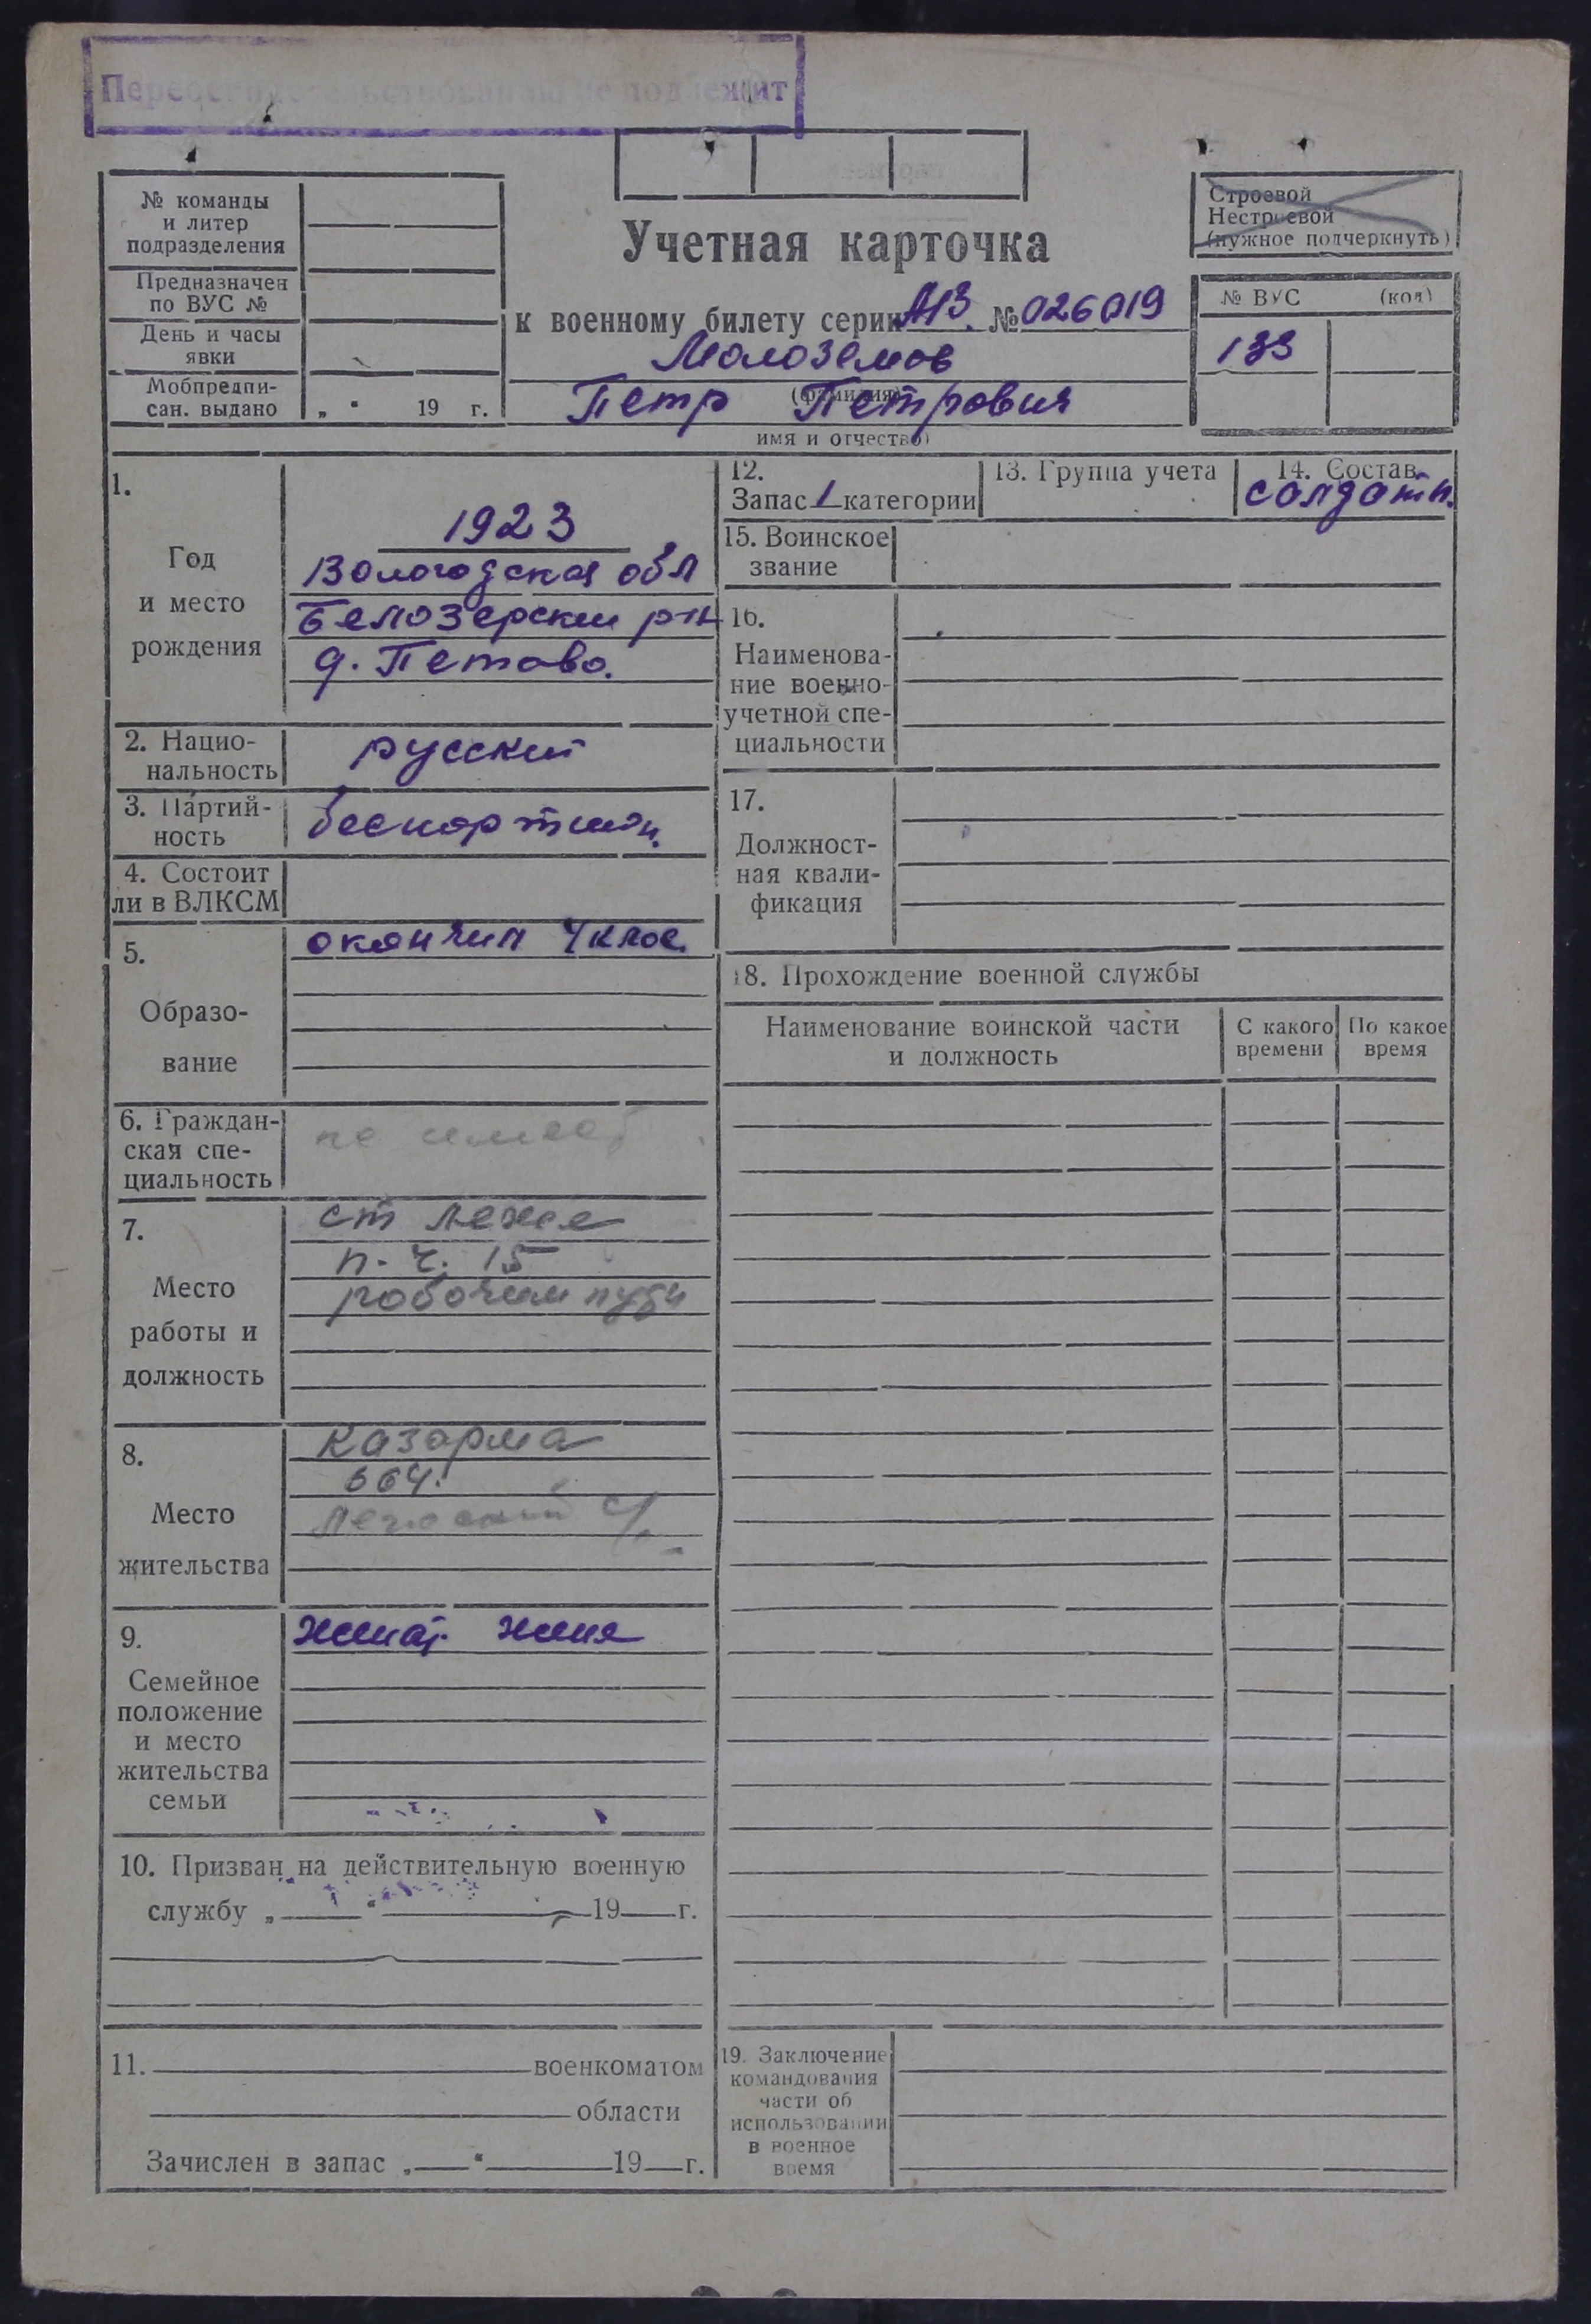 Переосвидетельствованию не подлежит
№ команды
и литер
подразделения
Предназначен
по ВУС №
День и часы
явки
Мобпредпи-
сан. выдано „ “ 19 г.
Учетная карточка
к военному билету серии АЗ № 026019
Малоземов
(фамилия)
Петр Петрович
имя и отчество)
Строевой
Нестроевой
(нужное подчеркнуть)
№ ВУС (код)
133
1.
Год
и место
рождения
1923
Вологодская обл
Белозерский р-н
д. Петово.
2. Нацио-
нальность
русский
3. Партий-
ность
беспартийн.
4. Состоит
ли в ВЛКСМ
5.
Образо-
вание
окончил 4 клас.
6. Граждан-
ская спе-
циальность
не имеет
7.
Место
работы и
должность
ст Лежа
п. ч. 15
рабочим пути
8.
Место
жительства
казарма
664.
Лежский с/
9.
Семейное
положение
и место
жительства
семьи
женат. жена
10. Призван на действительную военную
службу „ “ 19 г.
11. военкоматом
области
Зачислен в запас „ “ 19 г.
12.
Запас 1 категории
13. Группа учета
14. Состав
солдатк.
15. Воинское
звание
16.
Наименова-
ние военно-
учетной спе-
циальности
17.
Должност-
ная квали-
фикация
18. Прохождение военной службы
Наименование воинской части
и должность
С какого
времени
По какое
время
19. Заключение
командования
части об
использовании
в военное
время